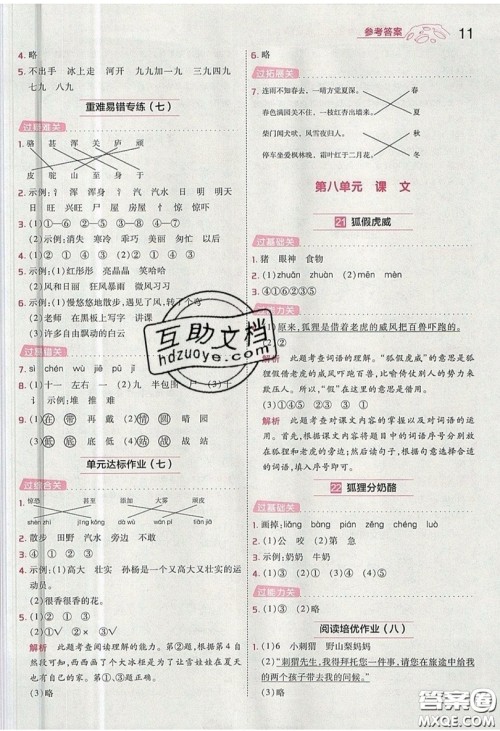 参考答案 11
4. 略
5. 不出手 冰上走 河开 九九加一九 九九
七九 八九
重难易错专练(七)
过基础关
1. 骆 甚 浑 关 庐 顽
皮 驼 山 至 身 于
2. 示例:讠 浑浑身身 氵 汽水 日 明 明天
日 旺 兴旺 尸 屋 房屋 忄 惊 惊吓
3. (1)①—⑥ (2)②—④ (3)⑤—③
4. (2)示例:清爽 寒冷 乖巧 失望 孤单 伤心
5. 示例:(1)红彤彤 亮晶晶 笑哈哈
(2)和风细雨 风和日丽 狂风暴雨
6. 示例:(1)慢悠悠地散步
(2)老师 在黑板上写字 讲课
(3)许多自由飘动的白云
7. sì chén wú
8. (1)十一 左右 一 (2)半包围
示例:堆 推 难
9. (1)在 带 再 戴 (2)情 圆 晴
(3)低 底 底 低 (4)站 战 战 站
单元达标作业(七)
过基础关
1. 惊恐 甚至 添加 大雾 顽皮
shèn zhì jīng kǒng dà wù wán pí tiān jiā
2. 散步 田野 汽水 旁边 不敢
3. ④ ① ② ③
4. 示例:(1)高大 壮实 孙杨是一个又高大又壮
实的人。
(2)很香很香的花。
5. (1)② ① ③
(2)①√ ②× ③√
解析 此题考查阅读理解的能力。第②题,根据第4自
然段可知,西西画了个大冰柜是为了让雪娃娃在夏天
也有自己的家。第①、③题正确。
(3)略
6. 略
过拓展关
7. 连雨不知春去,一晴方觉夏深。 春
春色满园关不住,一枝红杏出墙来。 夏
柴门闻犬吠,风雪夜归人。 秋
停车坐爱枫林晚,霜叶红于二月花。 冬
第八单元 课文
21 狐假虎威
过基础关
1. 猪 眼神 食物
2. (1)zhuàn zhuàn (2)mēn mèn
3. ④⑥①②③⑤
过能力关
(1)原来,狐狸是借着老虎的威风把百兽吓跑的。
(2)②
解析 此题考查词语的理解。“狐假虎威”的意思是狐
狸假借老虎的威风吓跑百兽,比喻倚仗别人的势力来
欺压人。所以“假”在这里是借用的意思。
解析 此题考查对课文内容的掌握以及对词语的运
用。首先,根据课文内容将题目中的词语序号分别放
在狐狸和老虎的旁边;然后读句子,根据习惯搭配选择
正确的词语序号。
22 狐狸分奶酪
过基础关
1. 画掉:liǎng bāng pián zēng chéng luó
2. (1)公 咬 (2)第 急
3. 示例:奶奶 牛奶
4. ① ③ ② ④
5. ③ ① ②
过能力关
6. 略
阅读培优作业(八)
1. (1)6 小刺猬 野山梨妈妈
(2)“刺猬先生,我得拜托您一件事,请您在旅途中给我
的两个孩子带去我的问候。”
(3)略
互助文档
hdzuoye.com
答案圈
MXQE.COM